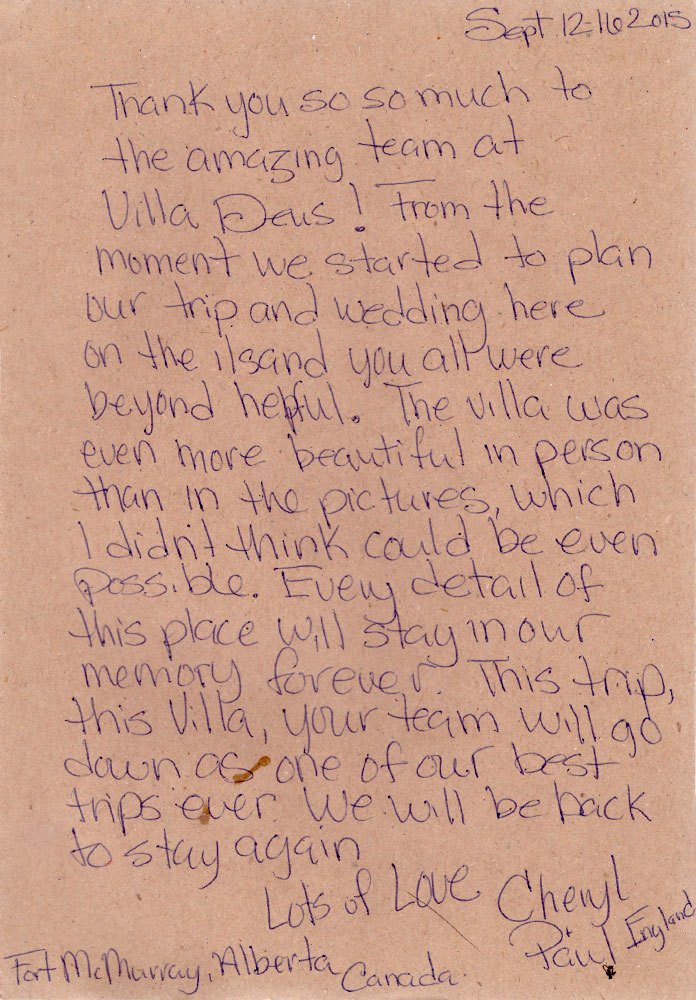 Sept 12-16 2015
Thank you so so much to
the amazing team at
Villa Deus! From the
moment we started to plan
our trip and wedding here
on the ilsand you all were
beyond helpful. The villa was
even more beautiful in person
than in the pictures, which
I didn't think could be even
possible. Every detail of
this place will stay in our
memory forever. This trip,
this Villa, your team will go
down as one of our best
trips ever. We will be back
to stay again
Lots of Love Cheryl
Paul England
Fort McMurray, Alberta
Canada.